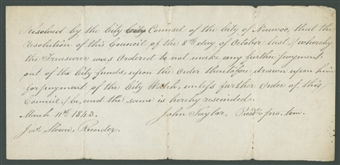 Resolved by the City Council of the City of Nauvoo, that the
resolution of this Council of the 8th day of October last, whereby
the Treasurer was Ordered to not make any further payment
out of the City funds, upon the Order therefor drawn upon him
for payment of the City Watch, unless further Order of this
Council, be, and the same is hereby rescinded.
March 11th 184
John Taylor, Prest pro. tem.
Recorder.